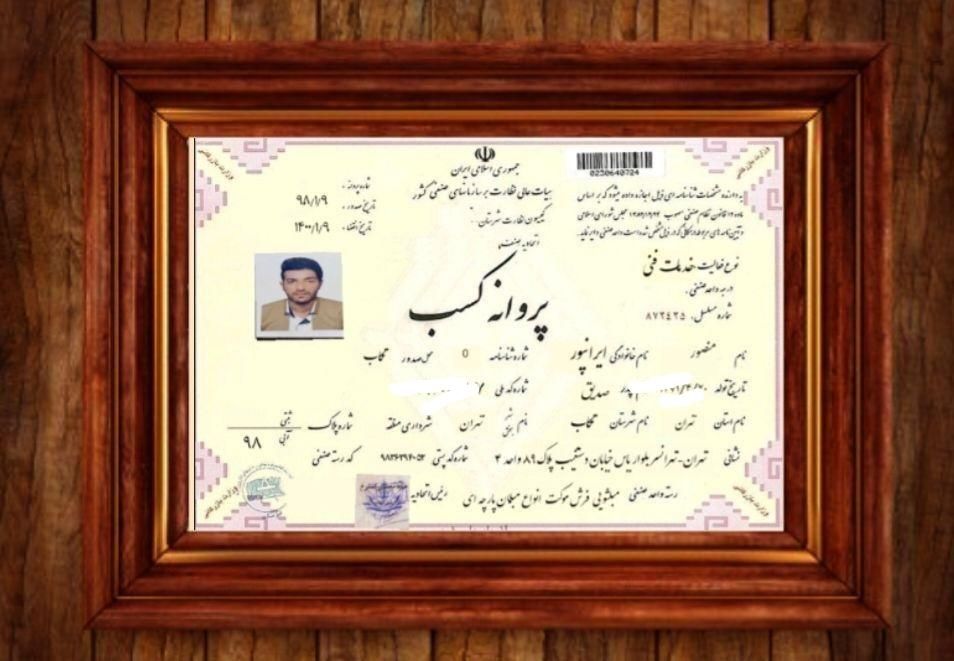 جمهوری اسلامی ایران
هیات عالی نظارت بر سازمانهای صنفی کشور
کمیسیون نظارت شهرستان
اتحادیه صنف
0230640724
به دارنده مشخصات شناسنامه ای ذیل اجازه داده میشود که بر اساس
شماره پروانه :
تاریخ صدور : ۹۸/۱/۹
تاریخ انقضاء : ۱۴۰۰/۱/۹
نوع فعالیت خدمات فنی
درجه واحد صنفی :
شماره مسلسل : ۸۷۲۴۲۵
پروانه کسب
نام منصور نام خانوادگی ایرانپور شماره شناسنامه 0 محل صدور تکاب
تاریخ تولد نام پدر صدیق شماره کد ملی
نام استان تهران نام شهرستان تکاب نام بخش تهران شهرداری منطقه شماره پلاک ثبتی
آبی ۹۸
نشانی تهران-تهرانسر بلوار یاس خیابان دستغیب پلاک ۸۹ واحد ۴ شماره کد پستی کد رسته صنفی
رسته واحد صنفی مبلشویی فرش موکت انواع مبلمان پارچه ای رئیس اتحادیه